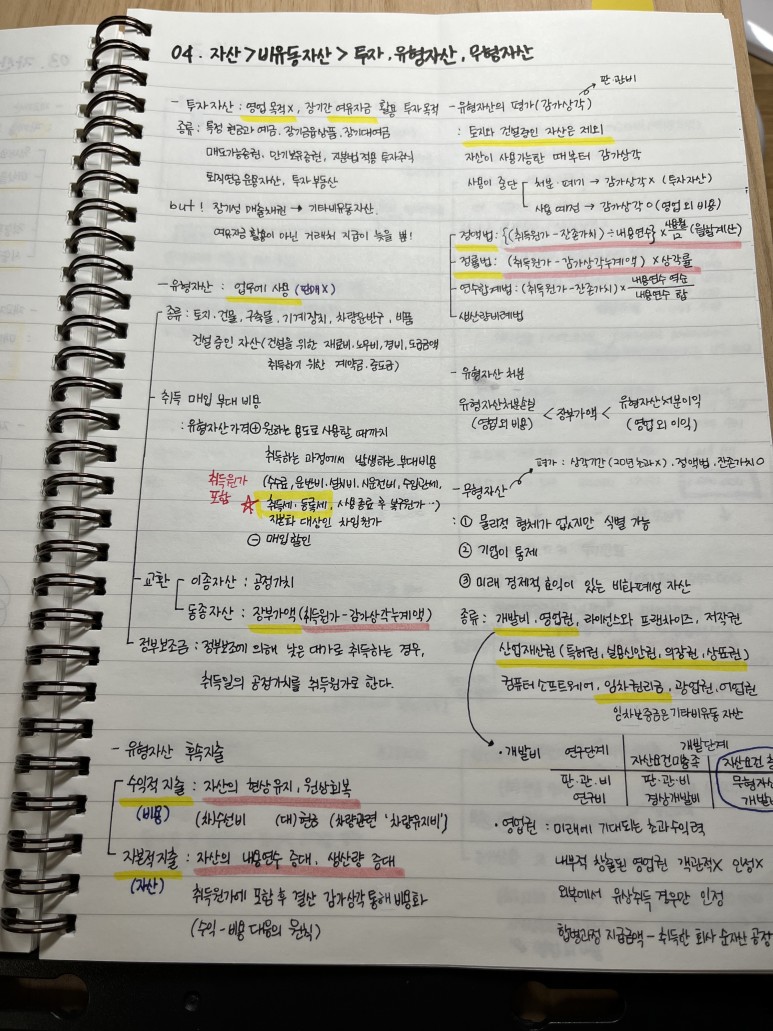 04. 자산 > 비유동자산 > 투자, 유형자산, 무형자산
- 투자자산 : 영업 목적X, 장기간 여유자금 활용 투자목적
종류 : 특정 현금과 예금, 장기금융상품, 장기대여금
매도가능증권, 만기보유증권, 지분법적용 투자주식
퇴직연금운용자산, 투자부동산
but! 장기성 매출채권 → 기타비유동자산.
여유자금 활용이 아닌 거래처 지급이 늦을 뿐!
- 유형자산 : 업무에 사용 (판매X)
종류 : 토지, 건물, 구축물, 기계장치, 차량운반구, 비품
건설 중인 자산 (건설을 위한 재료비, 노무비, 경비, 도급금액
취득하기 위한 계약금, 중도금)
취득 매입 부대 비용
: 유형자산가격 ⊕ 원하는 용도로 사용할 때까지
취득하는 과정에서 발생하는 부대비용
취득원가 포함
(수수료, 운반비, 설치비, 시운전비, 수입관세,
☆ 취득세, 등록세, 사용종료 후 복구원가 …)
자본화 대상인 차입원가
⊖ 매입할인
교환
이종자산 : 공정가치
동종자산 : 장부가액 (취득원가 - 감가상각누계액)
정부보조금 : 정부보조에 의해 낮은 대가로 취득하는 경우,
취득일의 공정가치를 취득원가로 한다.
- 유형자산 후속지출
수익적 지출 : 자산의 현상유지, 원상회복
(비용) (차)수선비 (대)현금 (차량관련 '차량유지비')
자본적지출 : 자산의 내용연수 증대, 생산량 증대
(자산) 취득원가에 포함 후 결산 감가상각 통해 비용화
(수익-비용 대응의 원칙)
→ 판·관비
- 유형자산의 평가 (감가상각)
: 토지와 건설중인 자산은 제외
자산이 사용가능한 때부터 감가상각
사용이 중단
처분·폐기 → 감가상각X (투자자산)
사용 예정 → 감가상각O (영업 외 비용)
정액법 : {(취득원가-잔존가치)÷내용연수} × 사용월/12 (월할계산)
정률법 : (취득원가-감가상각누계액) × 상각률
연수합계법 : (취득원가-잔존가치) × 내용연수 역순/내용연수 합
생산량비례법
- 유형자산 처분
유형자산처분손실 (영업 외 비용) < 장부가액 < 유형자산처분이익 (영업 외 이익)
평가 : 상각기간 (20년 초과X), 정액법, 잔존가치0
- 무형자산
: ① 물리적 형체가 없지만 식별 가능
② 기업이 통제
③ 미래 경제적 효익이 있는 비화폐성 자산
종류 : 개발비, 영업권, 라이선스와 프랜차이즈, 저작권
산업재산권 (특허권, 실용신안권, 의장권, 상표권)
컴퓨터소프트웨어, 임차권리금, 광업권, 어업권
임차보증금은 기타비유동 자산
· 개발비
연구단계 개발단계
자산요건미충족 자산요건
판·관·비 판·관·비 무형자산
연구비 경상개발비 개발비
· 영업권 : 미래에 기대되는 초과수익력
내부적 창출된 영업권 객관적X 인정X
외부에서 유상취득 경우만 인정
합병과정 지급금액 - 취득한 회사 순자산 공정